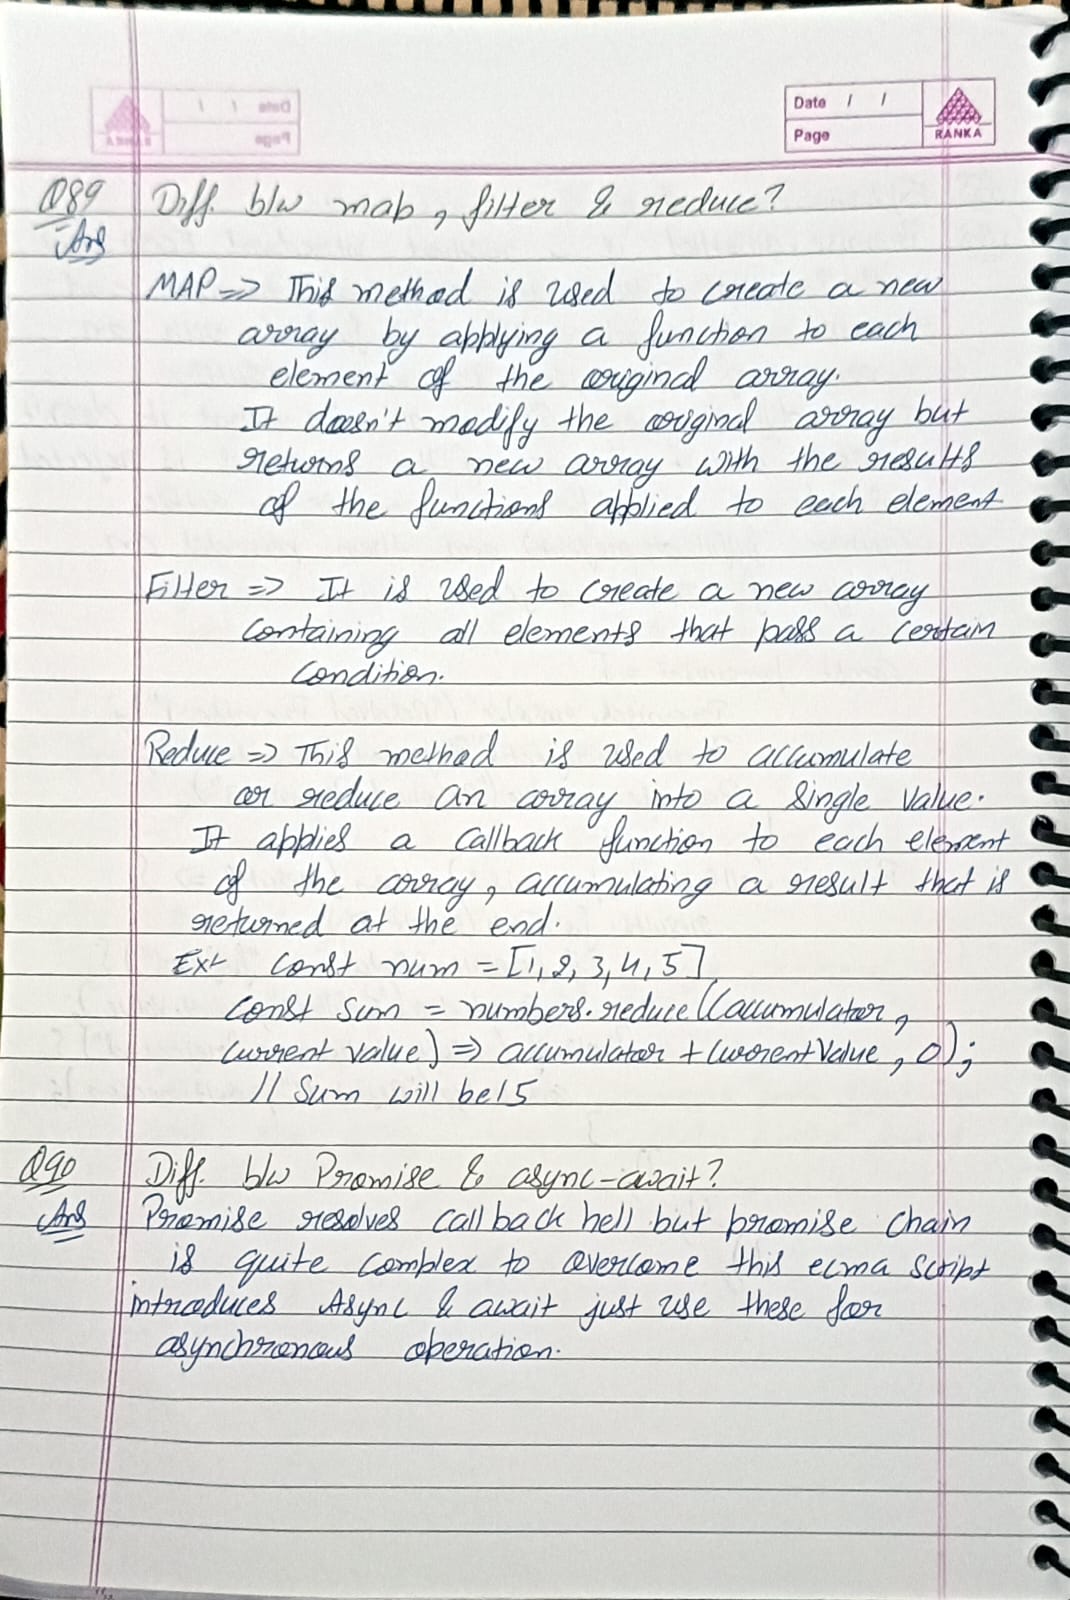 Date / /
Page
RANKA
Q89 Diff. b/w map, filter & reduce?
Ans
MAP => This method is used to create a new
array by applying a function to each
element of the original array.
It doesn't modify the original array but
returns a new array with the results
of the functions applied to each element
Filter => It is used to create a new array
containing all elements that pass a certain
condition.
Reduce => This method is used to accumulate
or reduce an array into a single value.
It applies a callback function to each element
of the array, accumulating a result that is
returned at the end.
Ex:- const num = [1, 2, 3, 4, 5]
const sum = numbers.reduce((accumulator,
current value) => accumulator + currentValue, 0);
// sum will be 15
Q90 Diff. b/w Promise & async-await?
Ans Promise resolves call back hell but promise chain
is quite complex to overcome this ecma script
introduces Async & await just use these for
asynchronous operation.